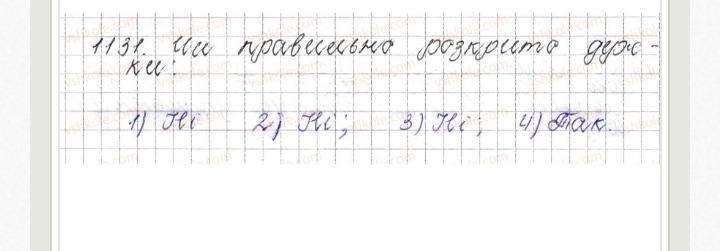 1131. Чи правильно розкрито дуж-
ки:
1) Ні 2) Ні; 3) Ні; 4) Так.